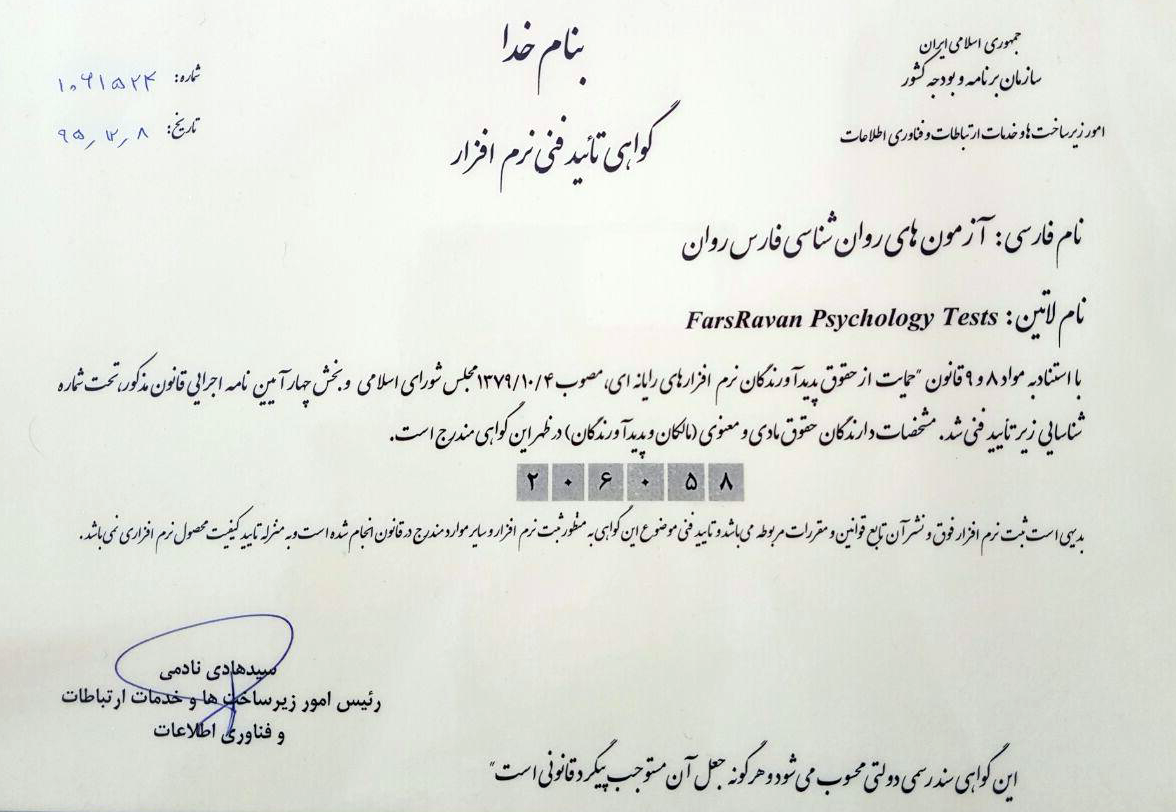 بنام خدا
جمهوری اسلامی ایران
سازمان برنامه و بودجه کشور
امور زیرساخت ها و خدمات ارتباطات و فناوری اطلاعات
شماره: ۱۰۶۱۵۲۴
تاریخ: ۹۵٫۱۲٫۸
گواهی تائید فنی نرم افزار
نام فارسی: آزمون های روان شناسی فارس روان
نام لاتین: FarsRavan Psychology Tests
با استناد به مواد ۸ و ۹ قانون "حمایت از حقوق پدیدآورندگان نرم افزارهای رایانه ای، مصوب ۱۳۷۹/۱۰/۴ مجلس شورای اسلامی و بخش چهار آیین نامه اجرایی قانون مذکور، تحت شماره
شناسایی زیر تأیید فنی شد. مشخصات دارندگان حقوق مادی و معنوی (مالکان و پدیدآورندگان) در ظهر این گواهی مندرج است.
۲۰۶۰۵۸
بدیهی است ثبت نرم افزار فوق و نشر آن تابع قوانین و مقررات مربوطه می باشد و تایید فنی موضوع این گواهی به منظور ثبت نرم افزار و سایر موارد مندرج در قانون انجام شده است و به منزله تایید کیفیت محصول نرم افزاری نمی باشد.
سیدهادی نادمی
رئیس امور زیرساخت ها و خدمات ارتباطات
و فناوری اطلاعات
این گواهی سند رسمی دولتی محسوب می شود و هرگونه جعل آن مستوجب پیگرد قانونی است"